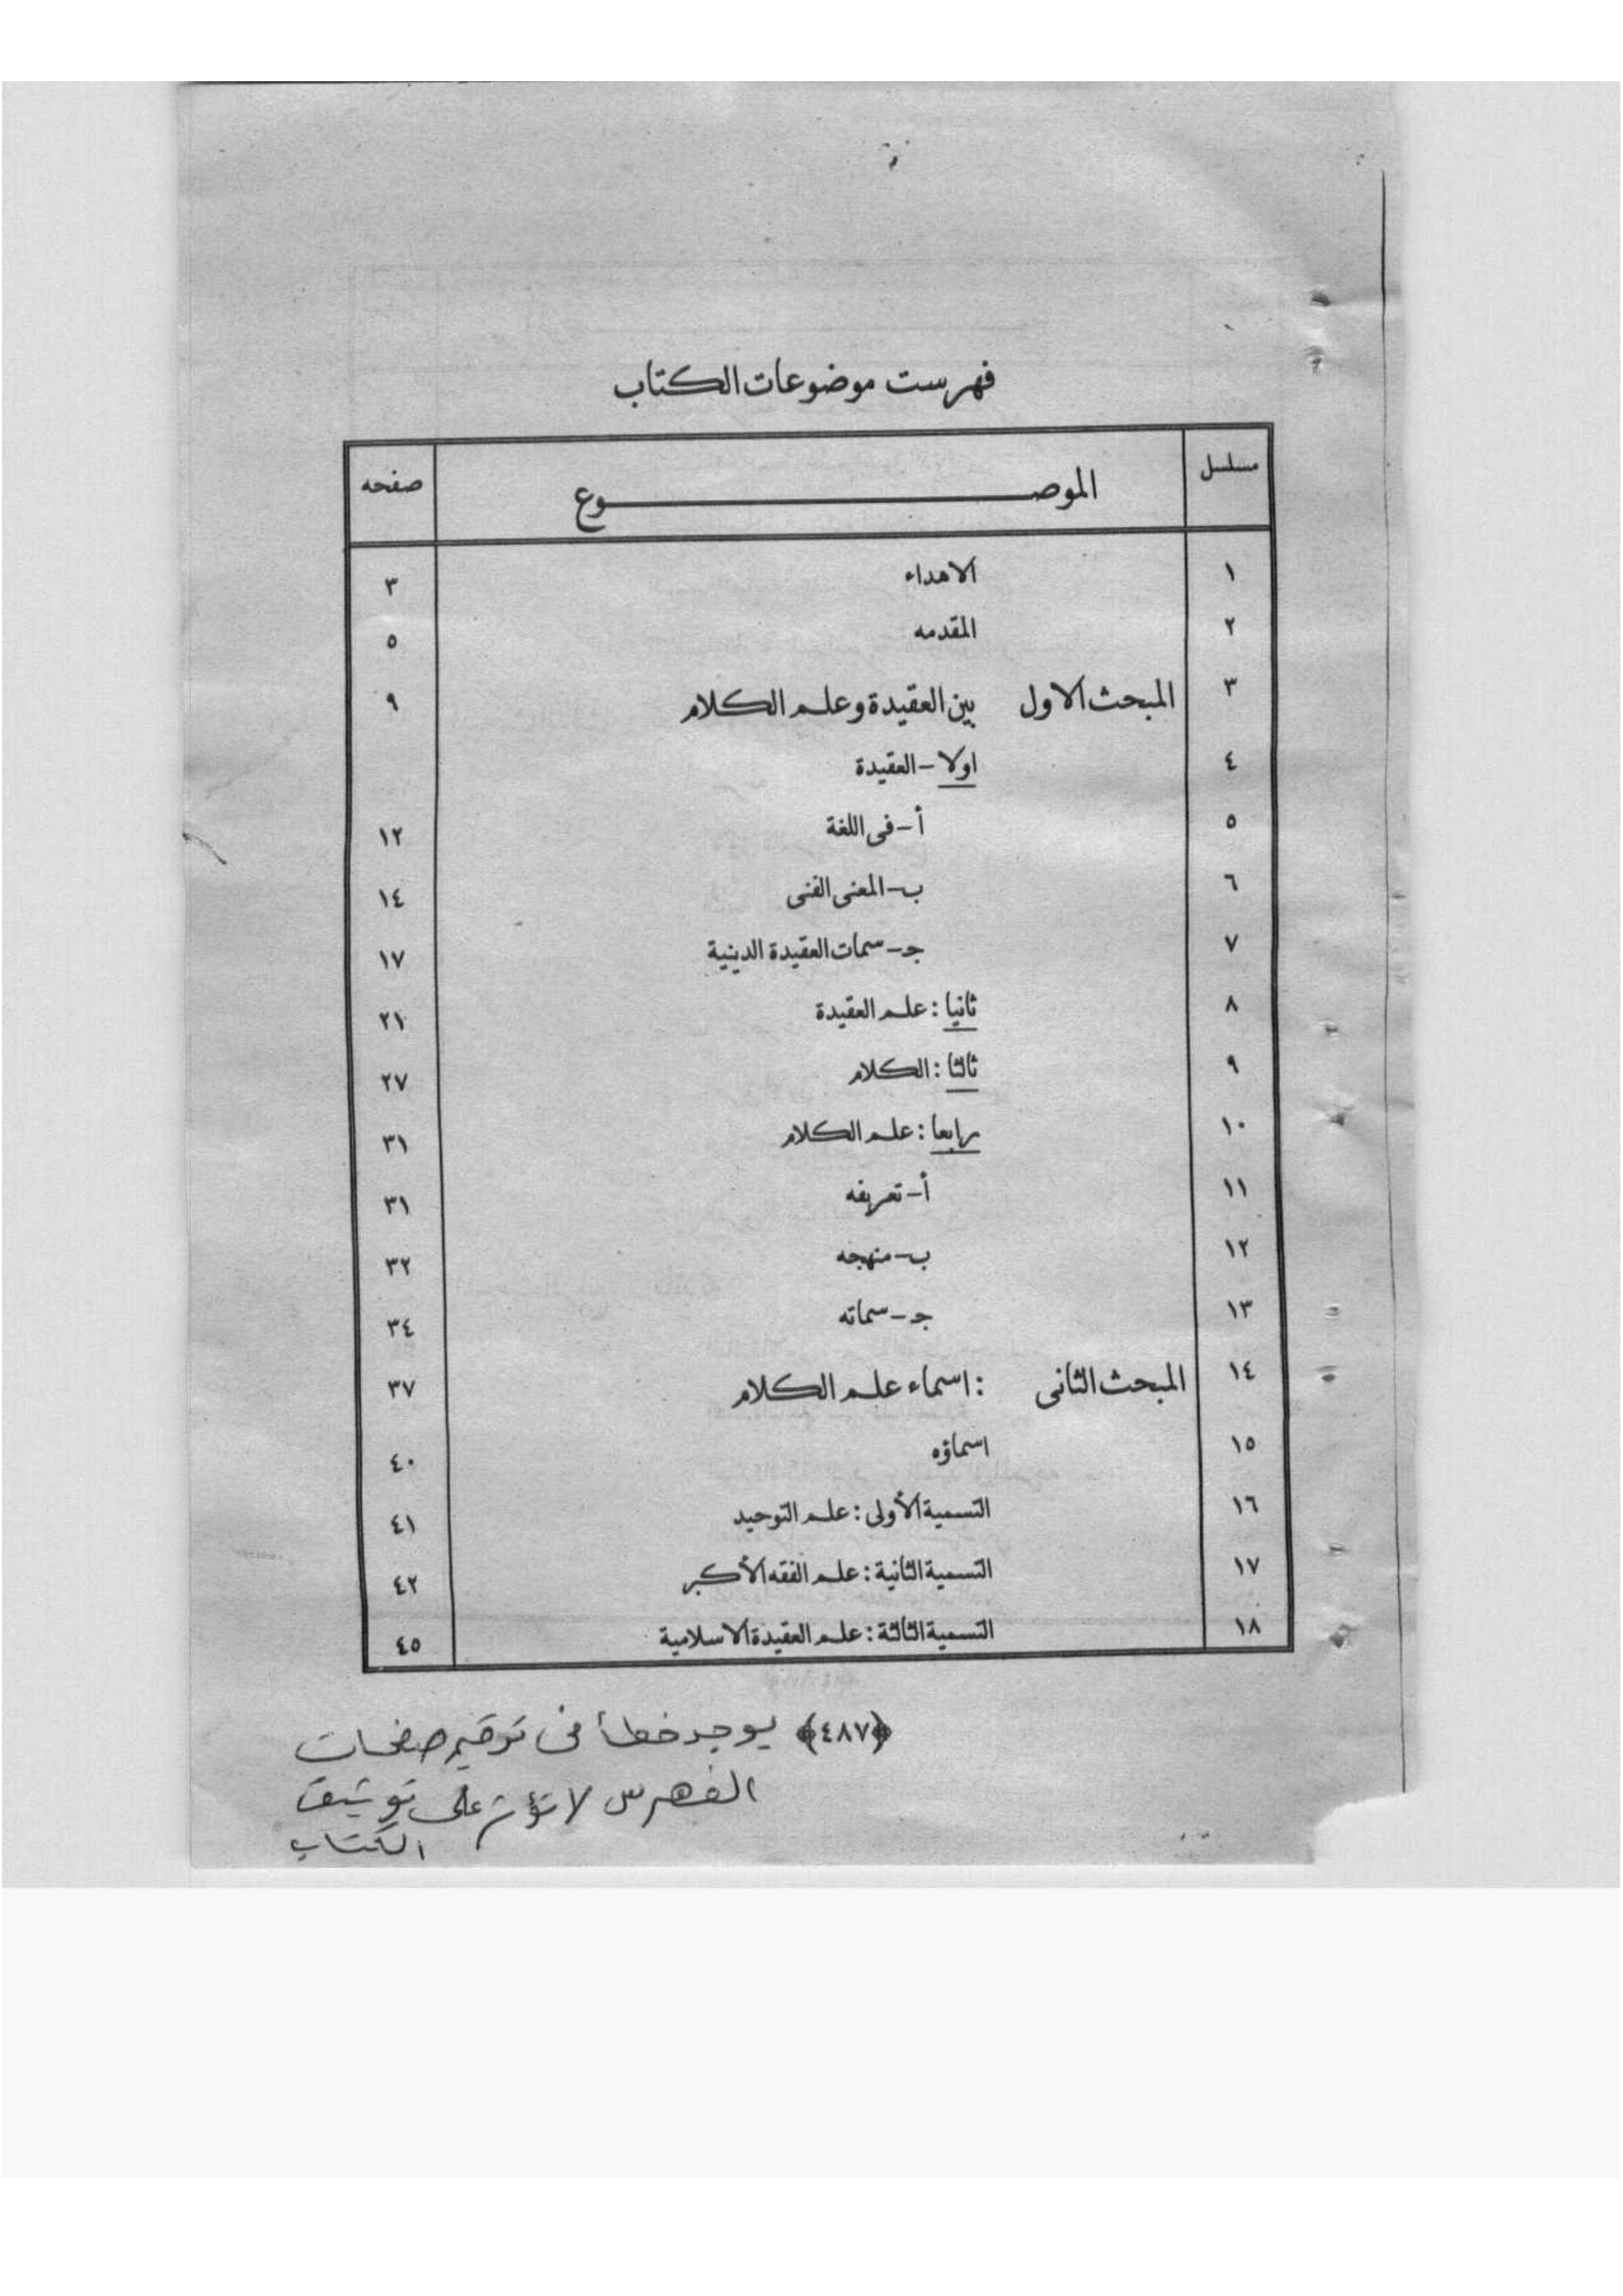 فهرست موضوعات الكتاب
مسلسل الموضـــــوع صفحه
١ الاهداء ٣
٢ المقدمه ٥
٣ المبحث الاول بين العقيدة وعلم الكلام ٩
٤ اولا - العقيدة
٥ أ - فى اللغة ١٢
٦ ب - المعنى الفنى ١٤
٧ جـ - سمات العقيدة الدينية ١٧
٨ ثانيا : علم العقيدة ٢١
٩ ثالثا : الكلام ٢٧
١٠ رابعا : علم الكلام ٣١
١١ أ - تعريفه ٣١
١٢ ب - منهجه ٣٢
١٣ جـ - سماته ٣٤
١٤ المبحث الثانى : اسماء علم الكلام ٣٧
١٥ اسماؤه ٤٠
١٦ التسمية الأولى : علم التوحيد ٤١
١٧ التسمية الثانية : علم الفقه الأكبر ٤٢
١٨ التسمية الثالثة : علم العقيدة الاسلامية ٤٥
﴿٤٨٧﴾ يوجد خطأ فى ترقيم صفحات
الفهرس لا تؤثر على توثيق
الكتاب